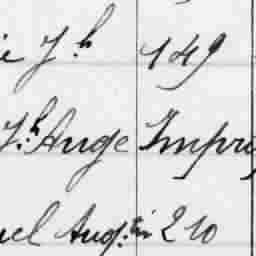 ie Jh 149
Jh. Auge Impri
uel Augtin 210